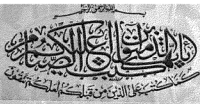 يا أيها الذين آمنوا كتب عليكم الصيام
كما كتب على الذين من قبلكم لعلكم تتقون